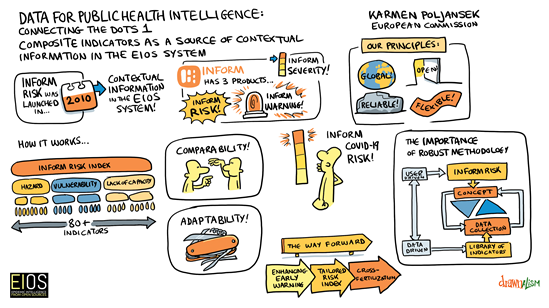 DATA FOR PUBLIC HEALTH INTELLIGENCE:
CONNECTING THE DOTS 1
COMPOSITE INDICATORS AS A SOURCE OF CONTEXTUAL
INFORMATION IN THE EIOS SYSTEM
KARMEN POLJANSEK
EUROPEAN COMMISSION
INFORM
RISK WAS
LAUNCHED
IN...
2010
CONTEXTUAL
INFORMATION
IN THE EIOS
SYSTEM!
INFORM
HAS 3 PRODUCTS...
INFORM
RISK!
INFORM
WARNING!
INFORM
SEVERITY!
OUR PRINCIPLES:
GLOBAL!
OPEN!
RELIABLE!
FLEXIBLE!
HOW IT WORKS...
INFORM RISK INDEX
HAZARD
VULNERABILITY
LACK OF CAPACITY
80+
INDICATORS
COMPARABILITY!
ADAPTABILITY!
INFORM
COVID-19
RISK!
THE WAY FORWARD
ENHANCING
EARLY
WARNING
TAILORED
RISK
INDEX
CROSS-
FERTILIZATION
THE IMPORTANCE
OF ROBUST METHODOLOGY
USER
DRIVEN
INFORM RISK
CONCEPT
DATA
COLLECTION
DATA
DRIVEN
LIBRARY OF
INDICATORS
EIOS
drawnalism